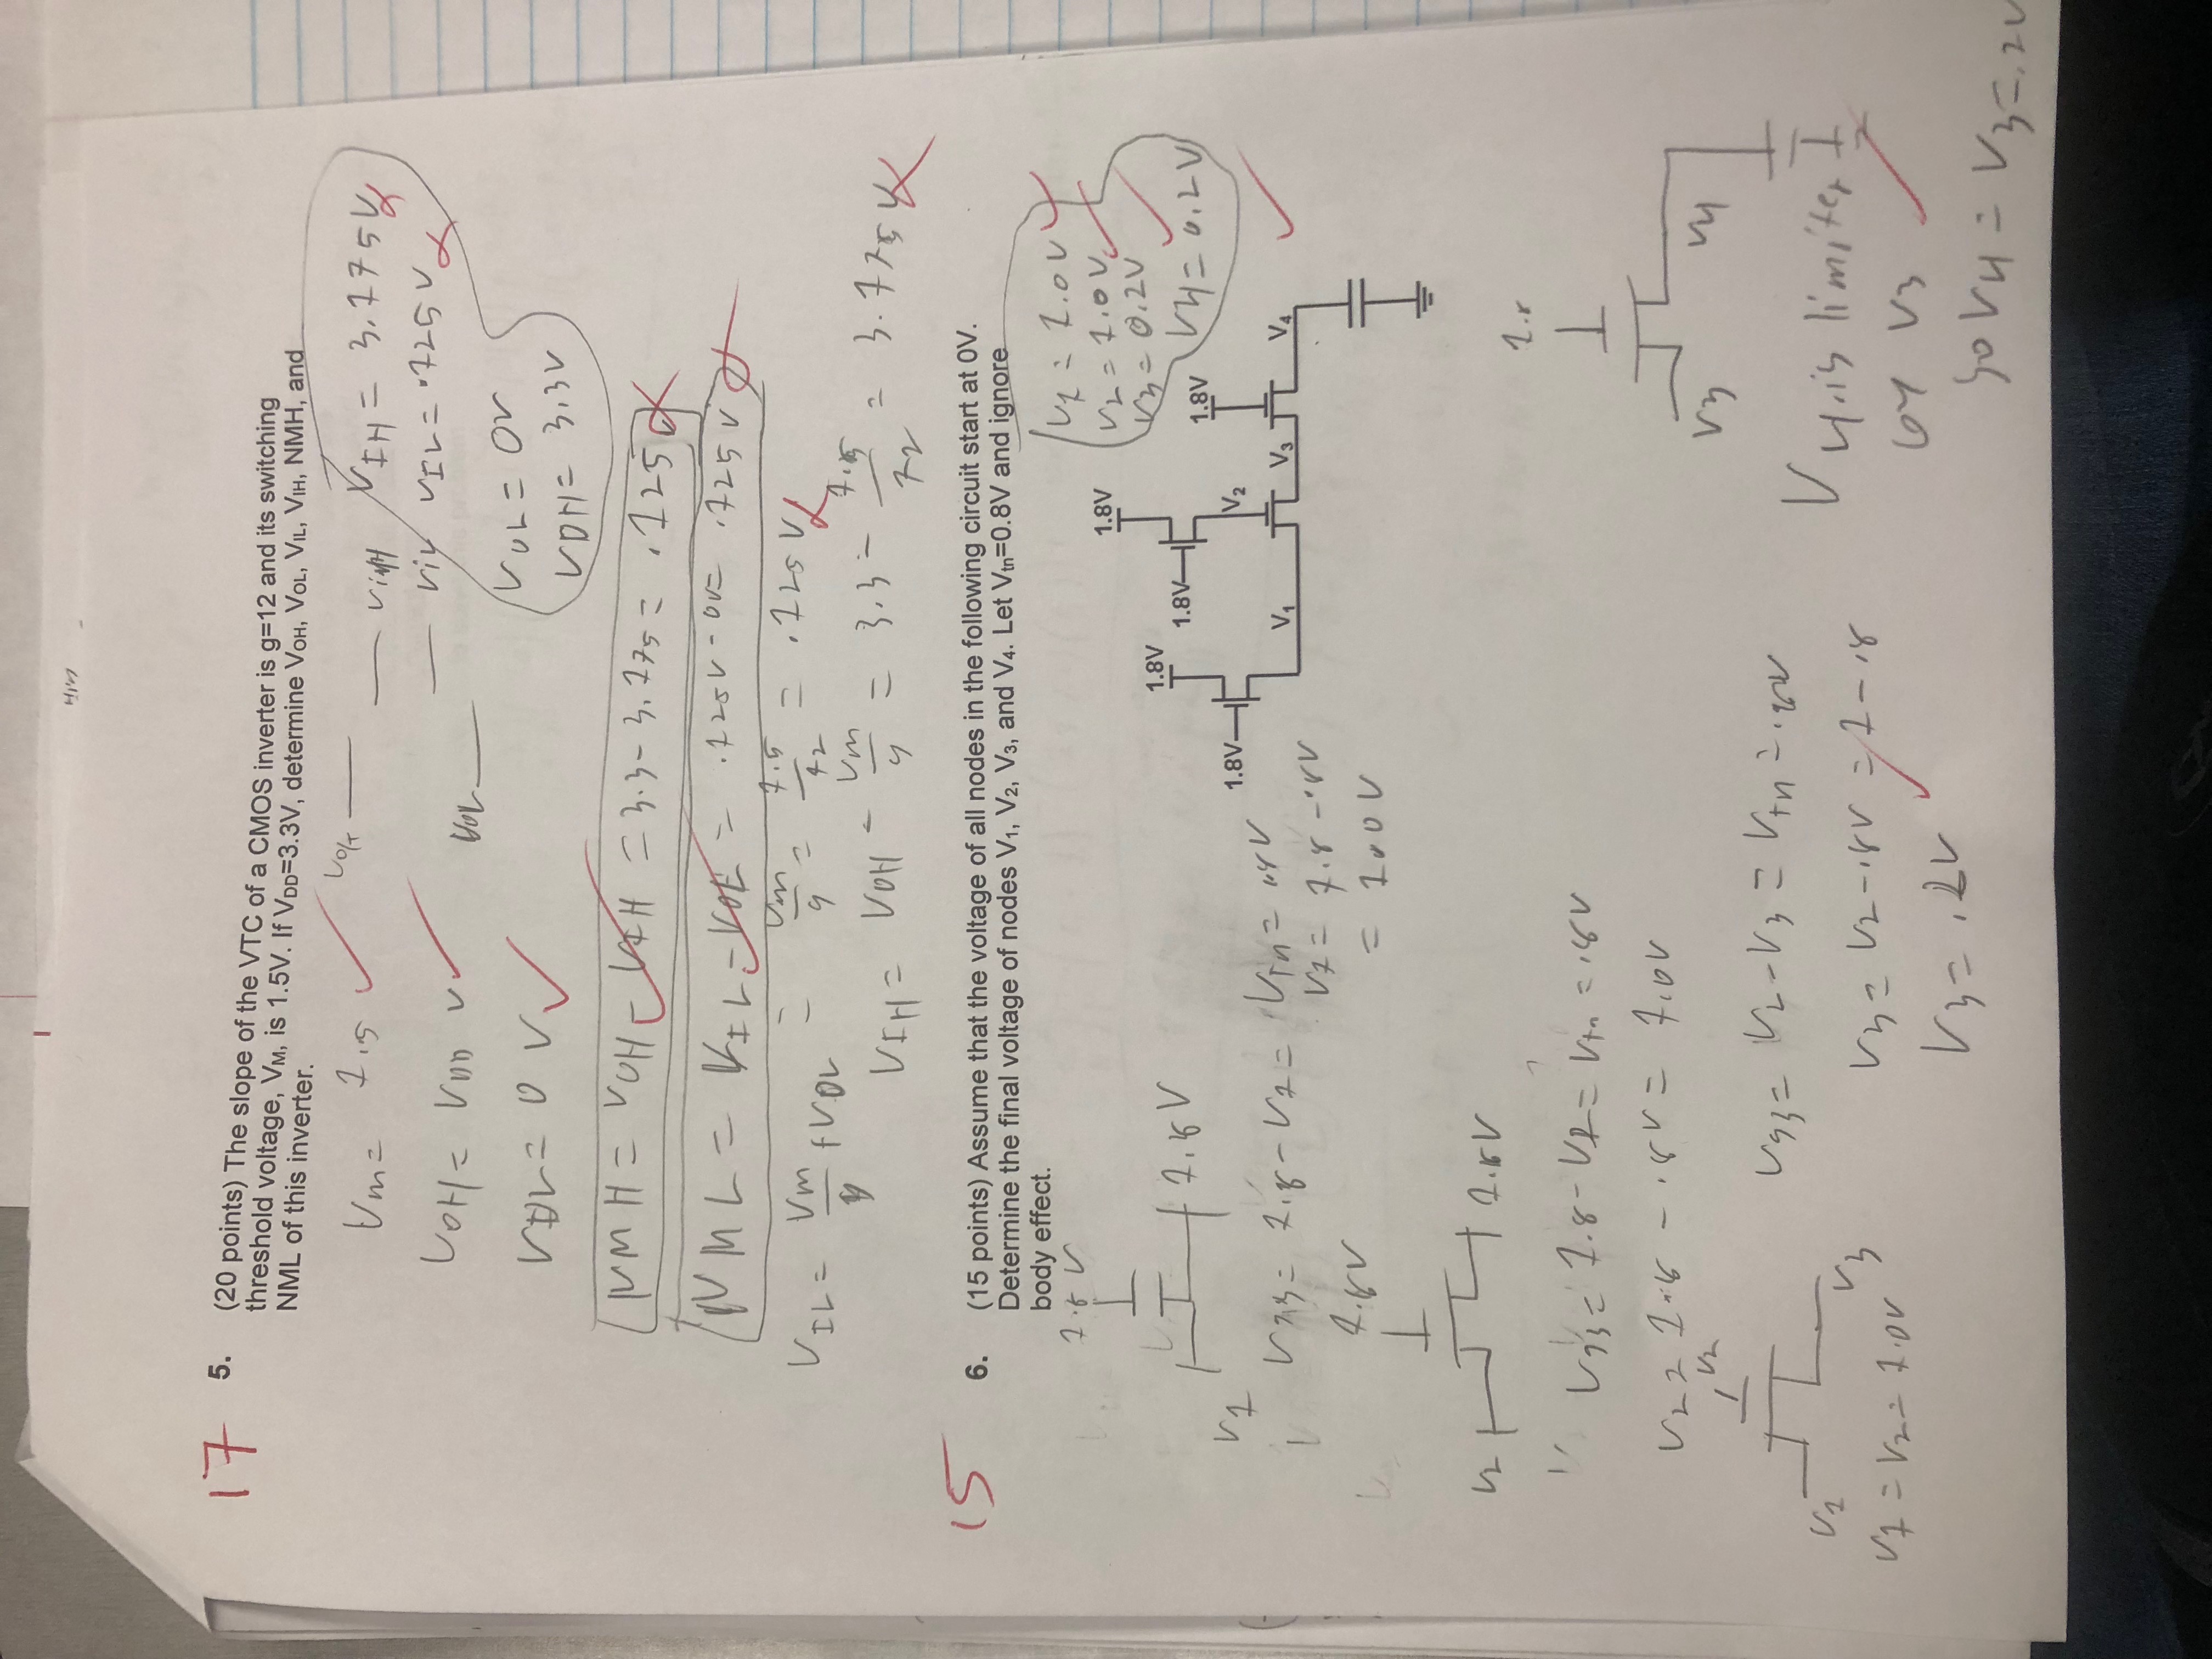 17
5. (20 points) The slope of the VTC of a CMOS inverter is g=12 and its switching
threshold voltage, VM, is 1.5V. If VDD=3.3V, determine VOH, VOL, VIL, VIH, NMH, and
NML of this inverter.
Vm= 1.5
VOH= VDD V
VOL= 0 V
VOH
VIH
VIL
VOL
VIH = 3.175V
VIL= .125V
VOL= 0V
VOH= 3.3V
NMH = VOH - VIH = 3.3- 3.175= .125
NML = VIL-VOL = .125V - 0V= .125V
VIL= Vm/g +VOL = Vm/g = 1.5/12 = .125 V
VIH= VOH - Vm/g = 3.3- 1.5/12 = 3.175 V
15
6. (15 points) Assume that the voltage of all nodes in the following circuit start at 0V.
Determine the final voltage of nodes V1, V2, V3, and V4. Let Vtn=0.8V and ignore
body effect.
V1 = 1.0V
V2 = 1.0V
V3 = 0.2V
V4= 0.2V
1.8V
1.8V
V1
1.8V
1.8V
1.8V
1.8V
1.8V
V1
V2
V3
V4
Vgs= 1.8-V1= Vtn= .8V
V1= 1.8-.8V
= 1.0V
1.8V
V2
1.8V
Vgs= 1.8-V2= Vtn =.8V
V2= 1.8 - .8V= 1.0V
V2
V1
V3
V1 = V2= 1.0V
Vgs= V2-V3 = Vtn =.8V
V3= V2-.8V =1-.8
V3= .2V
1.8
V3
V4
V4 is limited
by V3
so V4 = V3=.2V